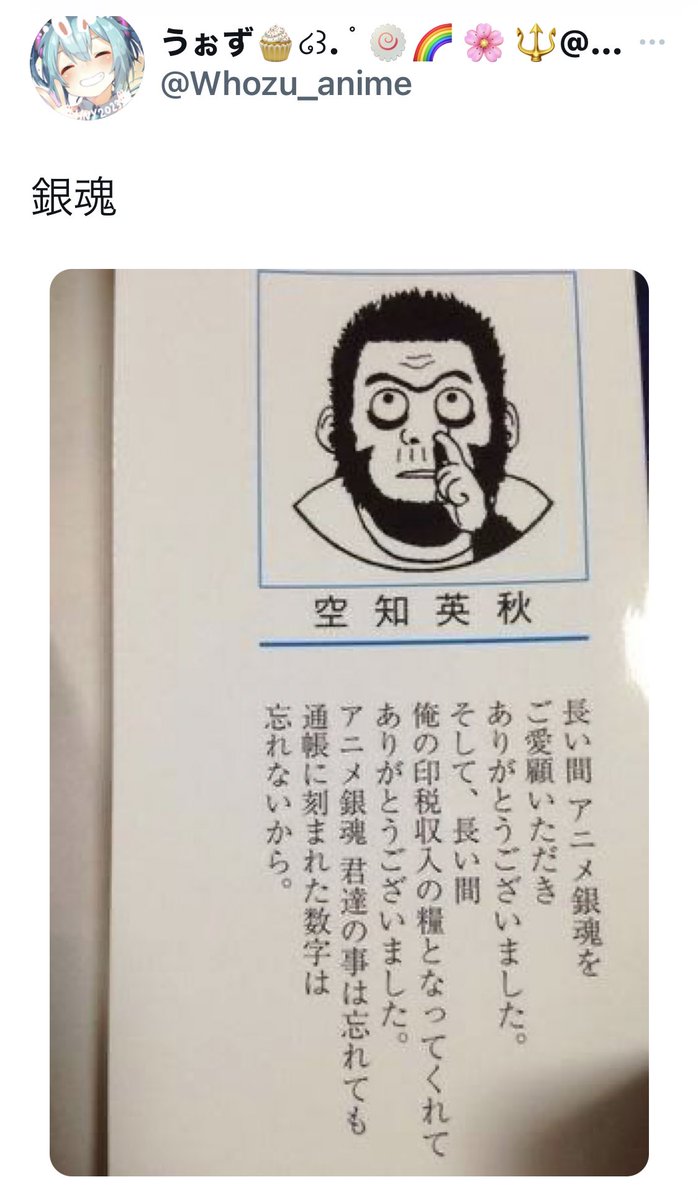 うぉず🧁໒꒱. ﾟ🍥🌈 🌸 🔱@...
@Whozu_anime
銀魂
空知英秋
長い間 アニメ銀魂を
ご愛顧いただき
ありがとうございました。
そして、長い間
俺の印税収入の糧となってくれて
ありがとうございました。
アニメ銀魂 君達の事は忘れても
通帳に刻まれた数字は
忘れないから。